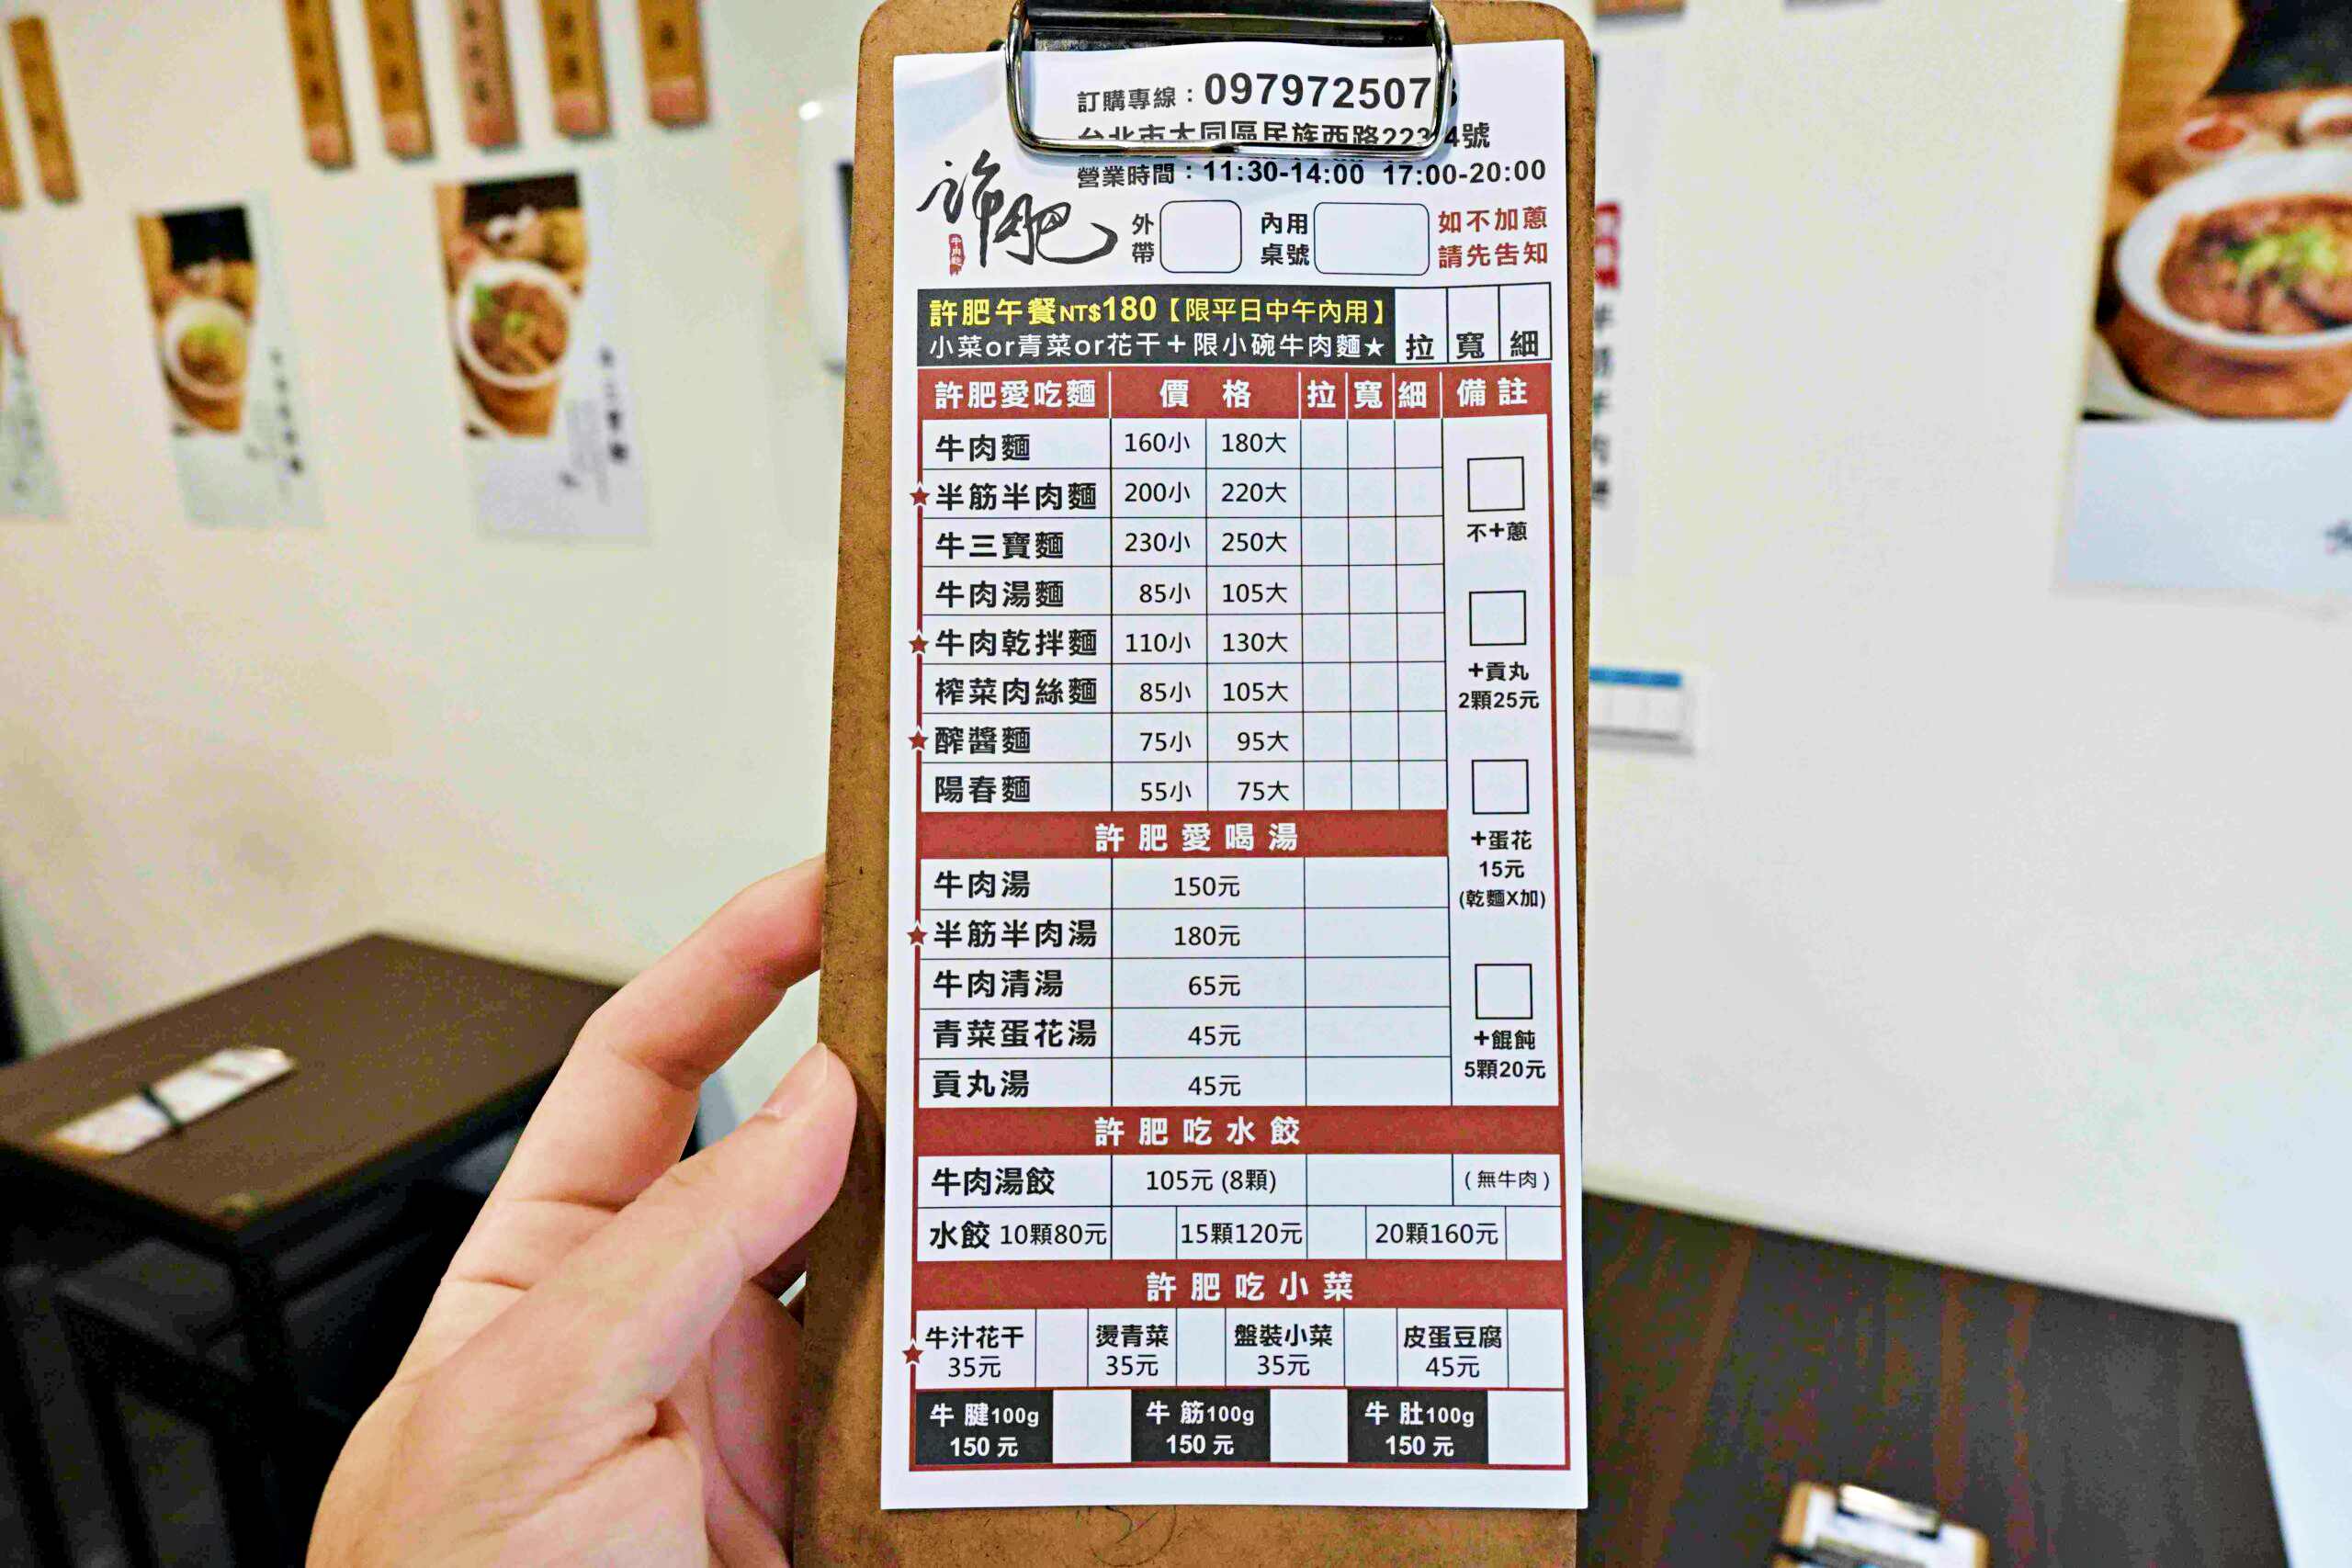 訂購專線：097972507
台北市大同區民族西路223 4號
營業時間：11:30-14:00 17:00-20:00
許肥
牛肉麵
外帶
內用桌號
如不加蔥
請先告知
許肥午餐NT$180【限平日中午內用】
小菜or青菜or花干＋限小碗牛肉麵★ 拉 寬 細
許肥愛吃麵 價格 拉 寬 細 備註
牛肉麵 160小 180大
★半筋半肉麵 200小 220大
牛三寶麵 230小 250大
牛肉湯麵 85小 105大
★牛肉乾拌麵 110小 130大
榨菜肉絲麵 85小 105大
★醡醬麵 75小 95大
陽春麵 55小 75大
不+蔥
+貢丸
2顆25元
+蛋花
15元
(乾麵X加)
+餛飩
5顆20元
許肥愛喝湯
牛肉湯 150元
★半筋半肉湯 180元
牛肉清湯 65元
青菜蛋花湯 45元
貢丸湯 45元
許肥吃水餃
牛肉湯餃 105元 (8顆) (無牛肉)
水餃 10顆80元 15顆120元 20顆160元
許肥吃小菜
★牛汁花干 燙青菜 盤裝小菜 皮蛋豆腐
35元 35元 35元 45元
牛腱100g 牛筋100g 牛肚100g
150元 150元 150元